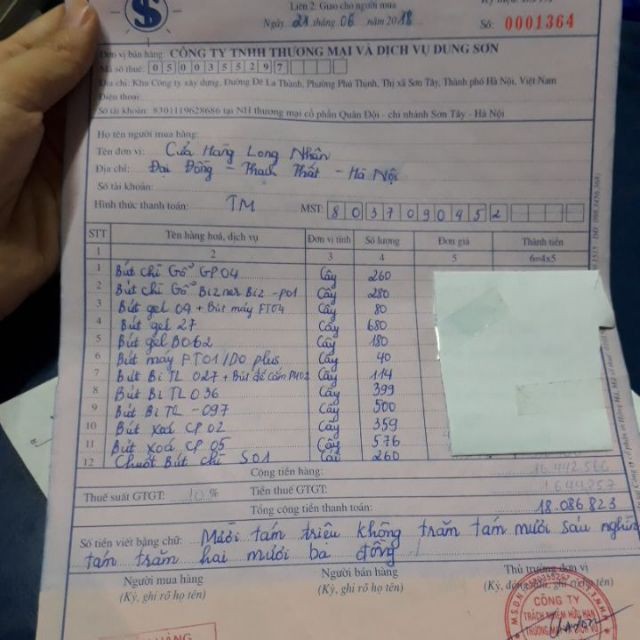 Liên 2: Giao cho người mua
Ngày 21 tháng 06 năm 2018
Số: 0001364
Đơn vị bán hàng: CÔNG TY TNHH THƯƠNG MẠI VÀ DỊCH VỤ DUNG SƠN
Mã số thuế: 0500355297
Địa chỉ: Khu Công ty xây dựng, Đường Đê La Thành, Phường Phú Thịnh, Thị xã Sơn Tây, Thành phố Hà Nội, Việt Nam
Điện thoại:
Số tài khoản: 8301119628686 tại NH thương mại cổ phần Quân Đội - chi nhánh Sơn Tây - Hà Nội
Họ tên người mua hàng:
Tên đơn vị: Cửa Hàng Long Nhân
Địa chỉ: Đại Đồng - Thạch Thất - Hà Nội
Số tài khoản:
Hình thức thanh toán: TM MST: 8037090452
STT Tên hàng hoá, dịch vụ Đơn vị tính Số lượng Đơn giá Thành tiền
1 2 3 4 5 6=4x5
1 Bút chì Gỗ GP04 Cây 260
2 Bút chì Gỗ Bizner Biz-P01 Cây 280
3 Bút gel 04 + Bút máy FT04 Cây 80
4 Bút gel 27 Cây 680
5 Bút gel B062 Cây 180
6 Bút máy FT01/DO plus Cây 40
7 Bút Bi TL 027 + Bút để cắm Cây 114
8 Bút Bi TL 036 Cây 399
9 Bút Bi TL - 097 Cây 500
10 Bút Xoá CP 02 Cây 359
11 Bút Xoá CP 05 Cây 576
12 Chuốt Bút chì S01 Cái 260
Cộng tiền hàng: 16.442.566
Thuế suất GTGT: 10% Tiền thuế GTGT: 1644257
Tổng cộng tiền thanh toán: 18.086.823
Số tiền viết bằng chữ: Mười tám triệu không trăm tám mươi sáu nghìn
tám trăm hai mươi ba đồng
Người mua hàng Người bán hàng Thủ trưởng đơn vị
(Ký, ghi rõ họ tên) (Ký, ghi rõ họ tên)
CÔNG TY
TRÁCH NHIỆM HỮU HẠN